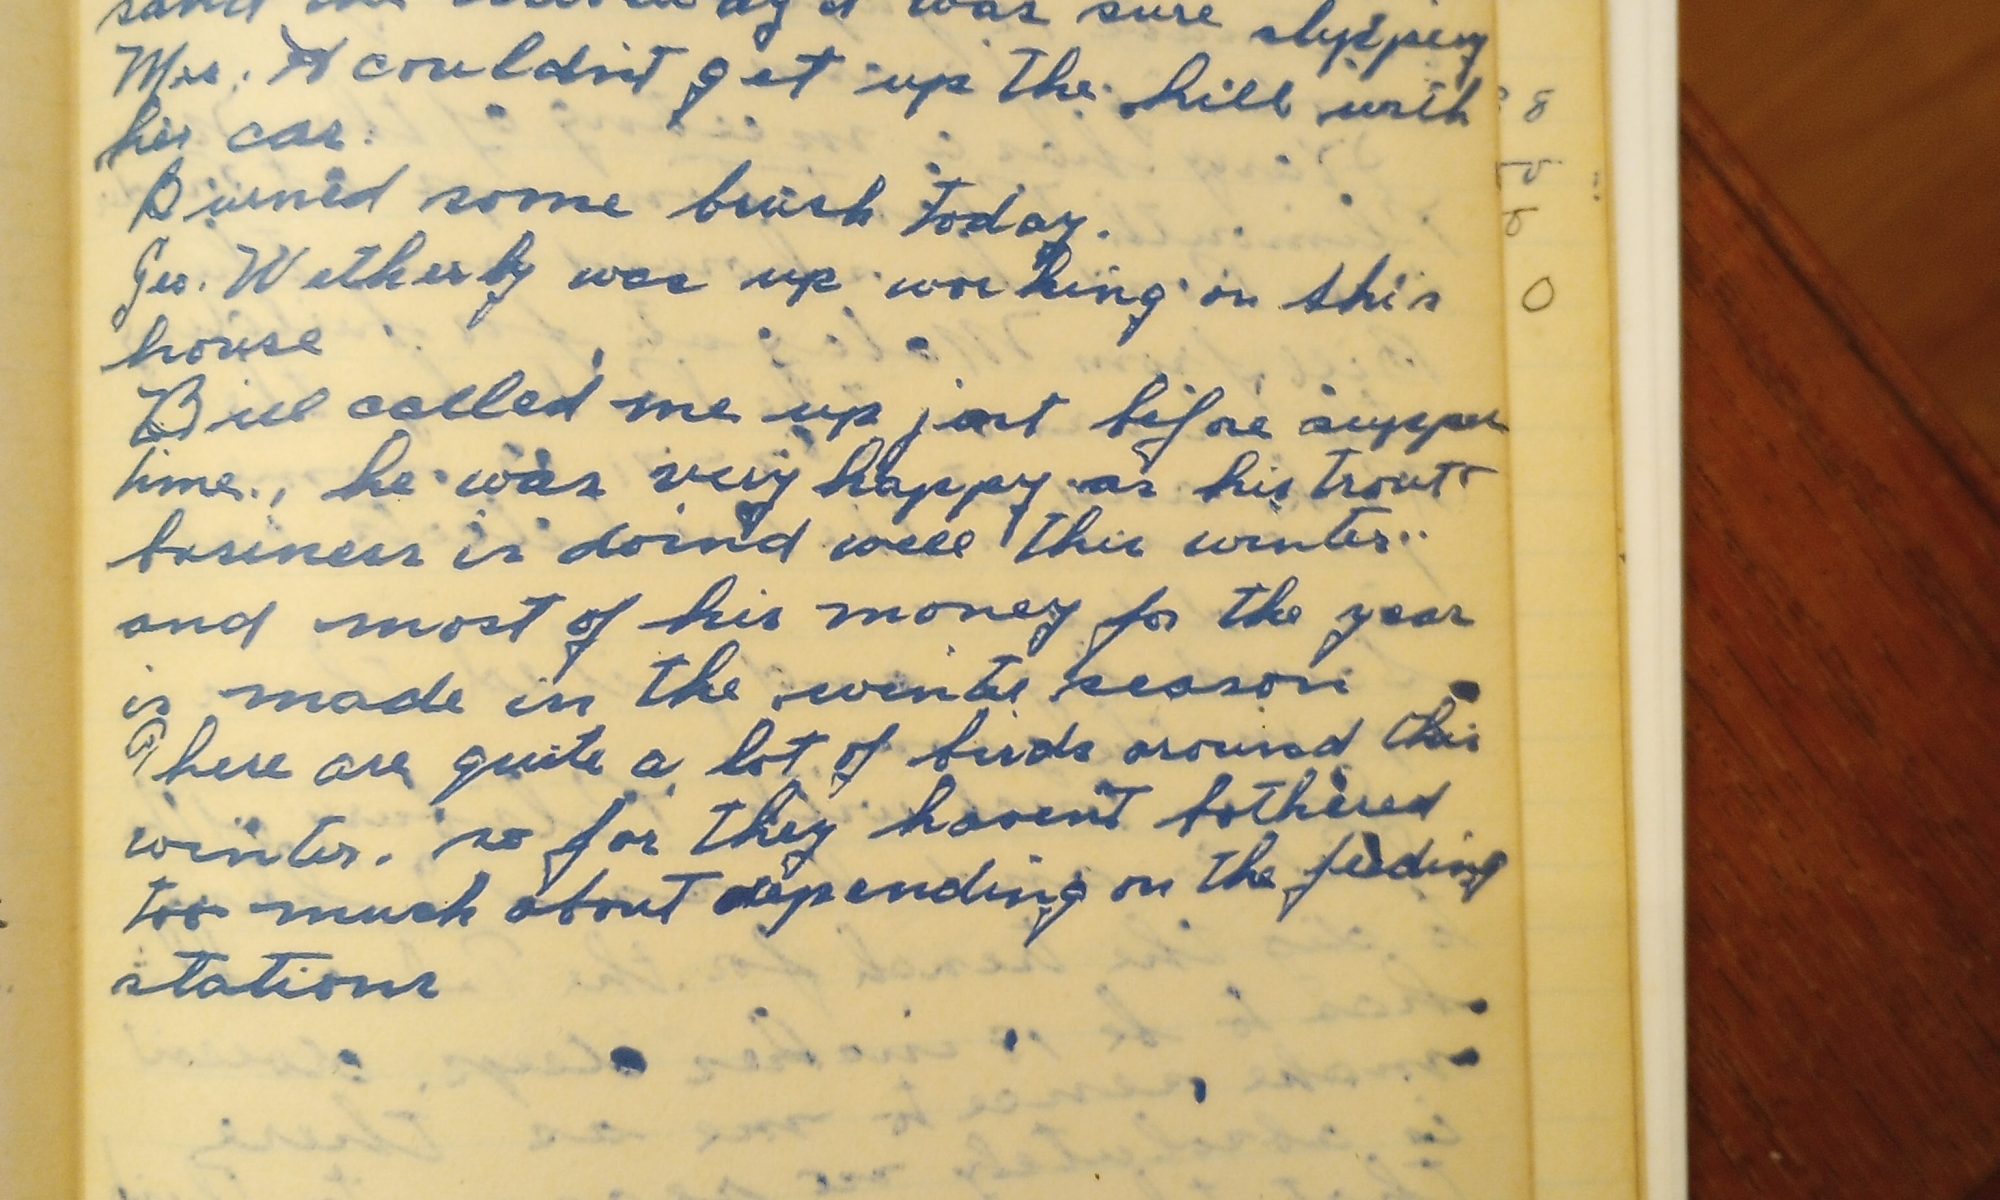 sand the driveway it was sure slipping
Mrs. A couldn't get up the hill with
her car.
Burned some brush today.
Geo. Wetherby was up working on this
house
Bill called me up just before supper
time., he was very happy as his trout
business is doind well this winter..
and most of his money for the year
is made in the winter season
There are quite a lot of birds around this
winter. so far they havent bothered
too much about depending on the feeding
stations